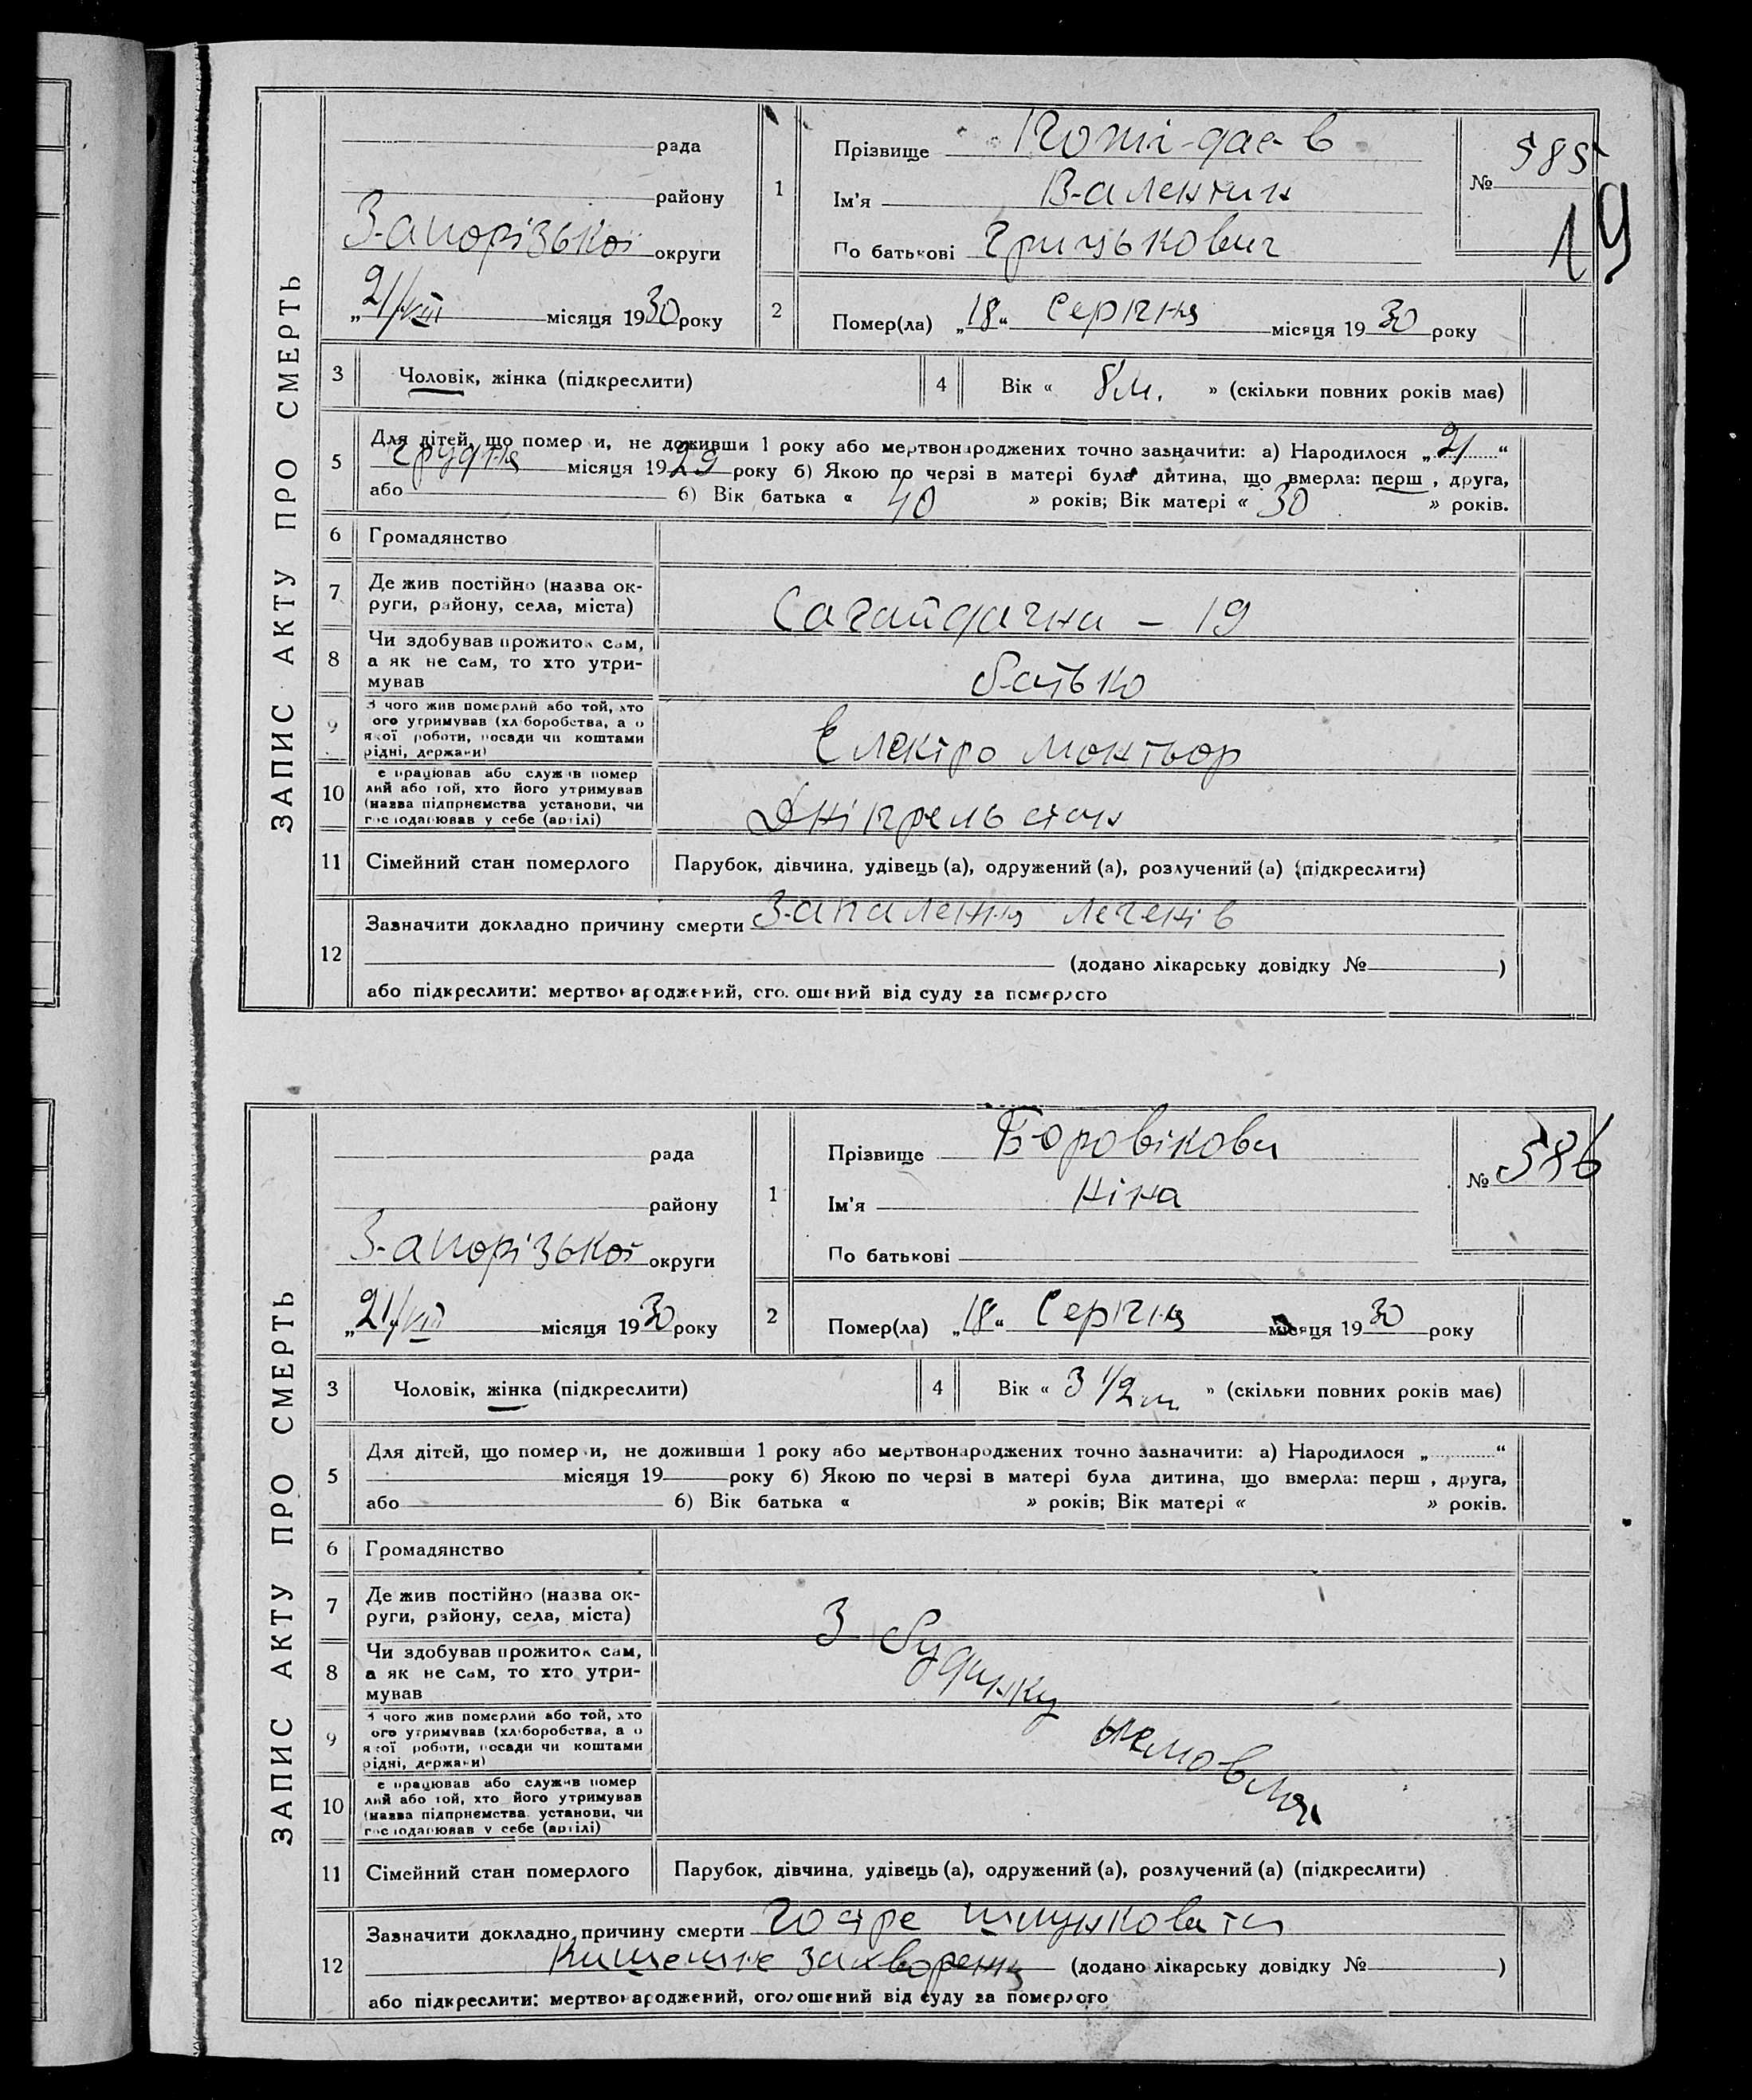 ЗАПИС АКТУ ПРО СМЕРТЬ
рада
району
Запорізької округи
„21/VIII місяця 1930 року
1
Прізвище
Ім'я Валентин
По батькові Грицькович
№ 585
19
2
Помер(ла) „18“ Серпня місяця 1930 року
3
Чоловік, жінка (підкреслити)
4
Вік « 8 м. » (скільки повних років має)
5
Для дітей, що помер и, не доживши 1 року або мертвонароджених точно зазначити: а) Народилося „21“
грудня місяця 1929 року б) Якою по черзі в матері була дитина, що вмерла: перш , друга,
або б) Вік батька « 40 » років; Вік матері « 30 » років.
6
Громадянство
7
Де жив постійно (назва ок-
руги, району, села, міста)
Сагайдачна – 19
8
Чи здобував прожиток сам,
а як не сам, то хто утри-
мував
батько
9
З чого жив померлий або той, хто
ого утримував (хл боробства, а о
якої роботи, посади чи коштами
рідні, держави)
Електро монтьор
10
е працював або служив помер
лий або той, хто його утримував
(назва підприємства установи, чи
господарював у себе (артілі)
Дніпрельстан
11
Сімейний стан померлого
Парубок, дівчина, удівець (а), одружений (а), розлучений (а) (підкреслити)
12
Зазначити докладно причину смерти Запалення легенів
(додано лікарську довідку № )
або підкреслити: мертвонароджений, оголошений від суду за померлого
ЗАПИС АКТУ ПРО СМЕРТЬ
рада
району
Запорізької округи
„21/VIII місяця 1930 року
1
Прізвище Боровікова
Ім'я Ніна
По батькові
№ 586
2
Помер(ла) „18“ Серпня місяця 1930 року
3
Чоловік, жінка (підкреслити)
4
Вік « 3 1/2 м » (скільки повних років має)
5
Для дітей, що помер и, не доживши 1 року або мертвонароджених точно зазначити: а) Народилося „ “
місяця 19 року б) Якою по черзі в матері була дитина, що вмерла: перш , друга,
або б) Вік батька « » років; Вік матері « » років.
6
Громадянство
7
Де жив постійно (назва ок-
руги, району, села, міста)
З будинку немовля
8
Чи здобував прожиток сам,
а як не сам, то хто утри-
мував
9
З чого жив померлий або той, хто
ого утримував (хл боробства, а о
якої роботи, посади чи коштами
рідні, держави)
10
е працював або служив помер
лий або той, хто його утримував
(назва підприємства установи, чи
господарював у себе (артілі)
11
Сімейний стан померлого
Парубок, дівчина, удівець (а), одружений (а), розлучений (а) (підкреслити)
12
Зазначити докладно причину смерти Гостре шлунковате
кишешне захворення (додано лікарську довідку № )
або підкреслити: мертвонароджений, оголошений від суду за померлого